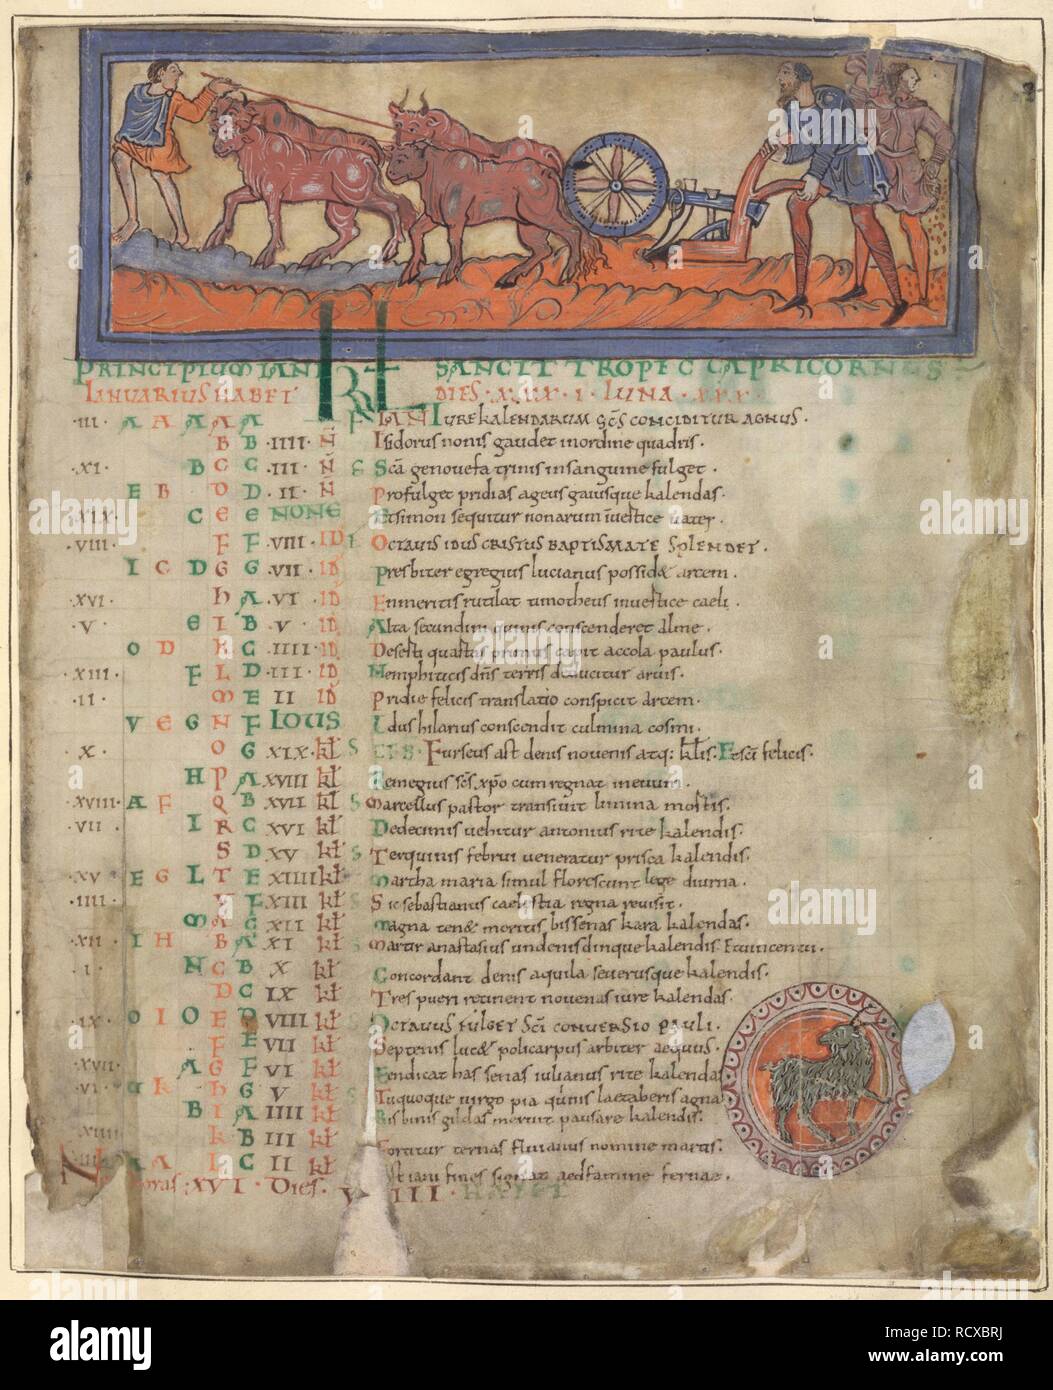 PRINCIPIUM IANI SANCIT TROPEC CAPRICORNES
IANUARIUS HABET DIES XXX I LUNA XXX
·III· A A A A A F IANI IURE KALENDARUM SCS CONCIDITUR AGNUS·
B B ·IIII· N̄ Isidorus nonis gaudet in ordine quadris·
·XI· B C C ·III· N̄ S Scā genouefa trinis in sanguine fulget·
E B D D ·II· N̄ Profulget pridias ageus gaiusque kalendas·
·XIX· C E E NONE Et simon sequitur nonarum
·VIII· F F ·VIII· ID OCTAVIS IDUS CRISTUS BAPTISMATE SPLENDET·
I C D G G ·VII· ID Presbiter egregius lucianus possidet artem·
·XVI· H A ·VI· ID Emeritis rutilat timotheus in uestice caeli·
·V· E I B ·V· ID Alta secundum quinis conscenderet alme·
O D K C ·IIII· ID paulus·
·XIII· F L D ·III· ID Nemphiticis dn̄s terris deducitur aruis·
·II· M E II ID Pridie felicis translatio conspicit artem·
V E G N F IDUS Idus hilarius conscendit culmina cosmi·
X· O G XIX· kł S Furseus ast denis nouenis atq: kłis· Et scī felicis·
H P A XVIII kł Remegius scs xp̄o cum regnat in euum·
·XVIII· A F Q B XVII kł S Marcellus pastor transiuit limina mortis·
·VII· I R C XVI kł Dedecimis uehitur antonius rite kalendis·
S D XV kł S Terquinis februi ueneratur prisca kalendis·
·XV· E G L T E XIIII kł Martha maria simul florescunt lege diurna·
·IIII· V F XIII kł S Sic sebastianus caelestia regna reuisit·
M A G XII kł Magna tenet meritis bissenas kara kalendas·
·XII· I H B A XI kł S Martir anastasius undenis dinque kalendis·
·I· N C B X kł Concordant denis aquila seuerusque kalendis·
D C IX kł Tres pueri retinent nouenas iure kalendas·
·IX· O I O E D VIII kł OCTAVUS FULGET SCI CONUERSIO PAULI·
F E VII kł Septenis lucet policarpus arbiter aequus·
·XVII· A G F VI kł Uendicat has senas iulianus rite kalendas
·VI· K H G V kł S Tuquoque uirgo pia quinis laetaberis agna
B I A IIII kł Bis binis gildas meruit pausare kalendis·
·XIIII· K B III kł Sortitur ternas flauianus nomine martis·
L C II kł fines signat
horas XVI· Dies· VIII· HABET
alamy
alamy
alamy
Image ID: RCXBRJ
www.alamy.com